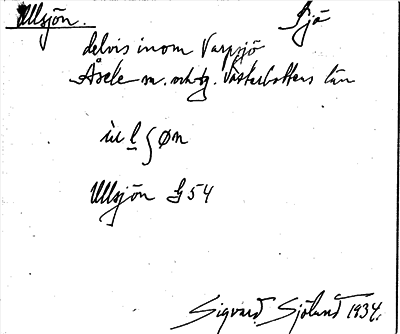 Ullsjön. Sjö
delvis inom Varpsjö
Åsele sn. Västerbottens län
ùl ʃøn
Ullsjön Gg 54
Sigvard Sjölund 1934.